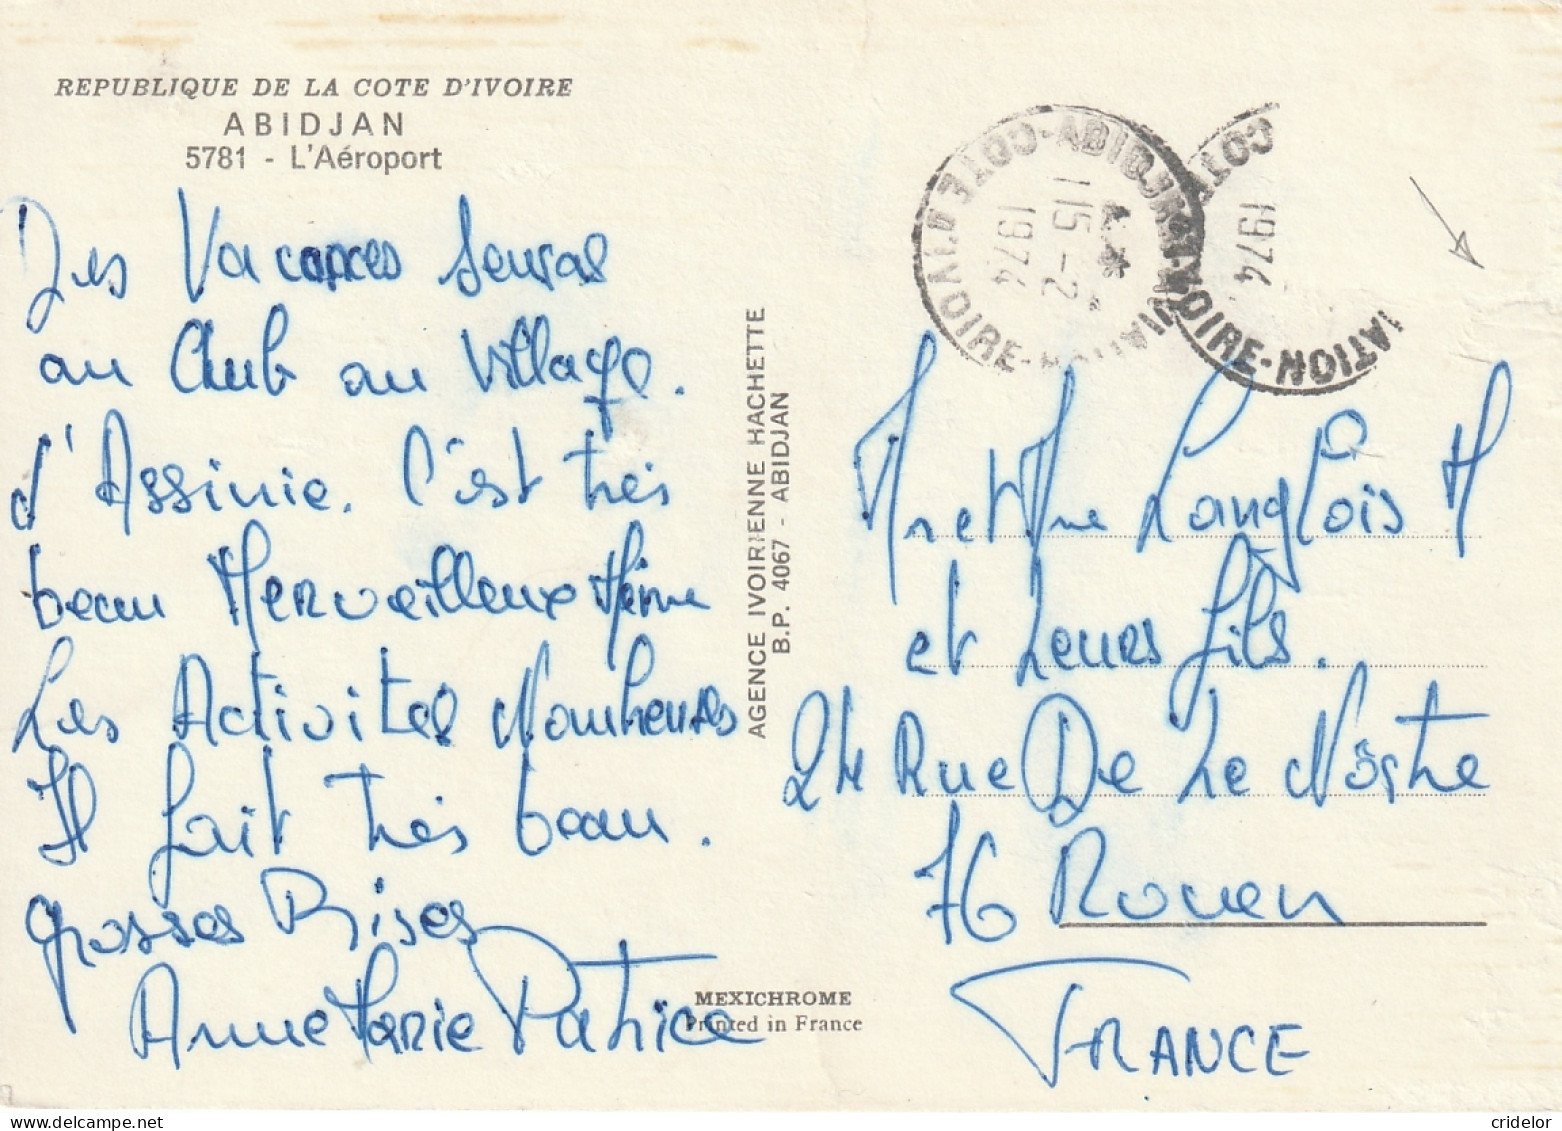 REPUBLIQUE DE LA COTE D'IVOIRE
ABIDJAN
5781 - L'Aéroport
Des Vacances
au Club au Village.
d'Assinie. C'est très
beau Merveilleux Même
Les Activités Nombreuses
Il fait très beau.
grosses Bises
Anne Marie Patrice
AGENCE IVOIRIENNE HACHETTE
B.P. 4067 - ABIDJAN
MEXICHROME
Printed in France
ABIDJAN-AVIATION
COTE D'IVOIRE
15-2
1974
COTE
1974
IVOIRE-
Mr et Mme Langlois M
et Leurs fils.
24 Rue De Le Nôstre
76 Rouen
FRANCE
cridelor